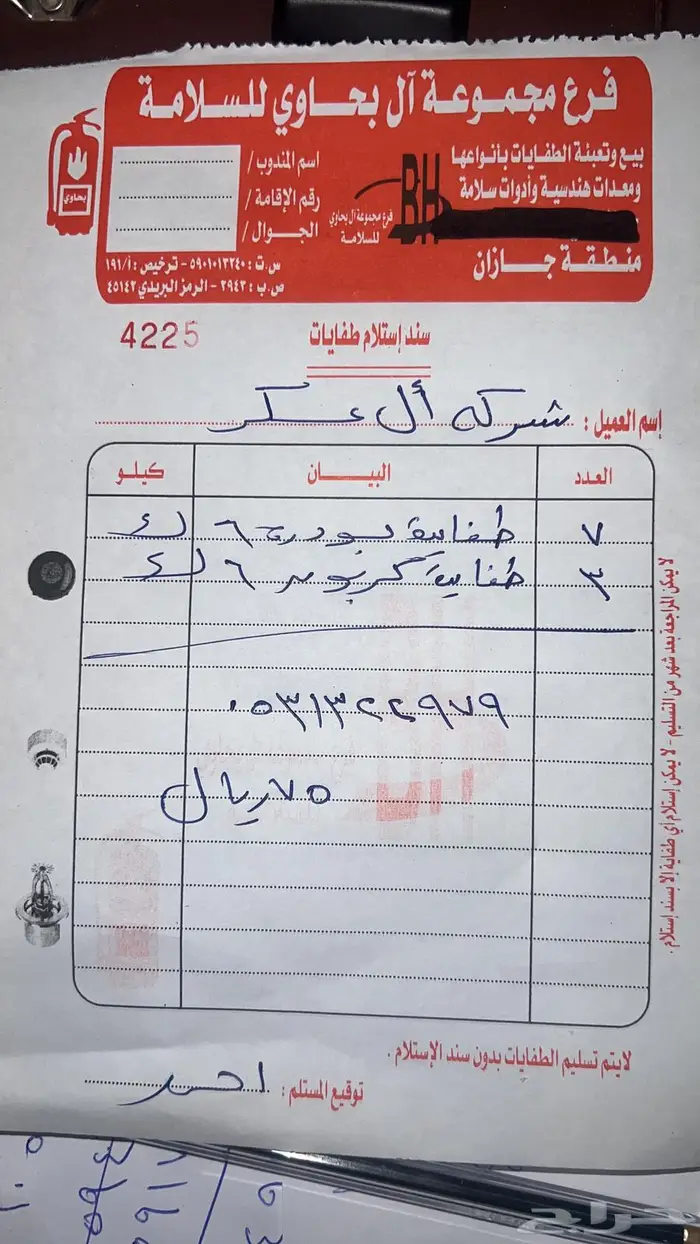 فرع مجموعة آل بحاوي للسلامة
بيع وتعبئة الطفايات بأنواعها
ومعدات هندسية وأدوات سلامة
منطقة جازان
BH
فرع مجموعة آل بحاوي
للسلامة
اسم المندوب /
رقم الإقامة /
الجوال /
س.ت : ٥٩٠١٠١٣٢٤٠ - ترخيص : ١٩١/أ
ص.ب : ٢٩٤٣ - الرمز البريدي ٤٥١٤٢
بحاوي
سند إستلام طفايات
4225
إسم العميل : شركه أل عسكر
العدد البيـــــان كيلو
٧ طفاية بودرة ٦ ك
٣ طفاية كربون ٦ ك
٠٥٣١٣٢٢٩٧٩
٧٥ ريال
لا يمكن المراجعة بعد شهر من التسليم - لا يمكن إستلام أي طفاية إلا بسند إستلام .
لايتم تسليم الطفايات بدون سند الإستلام .
توقيع المستلم : احمد
حراج